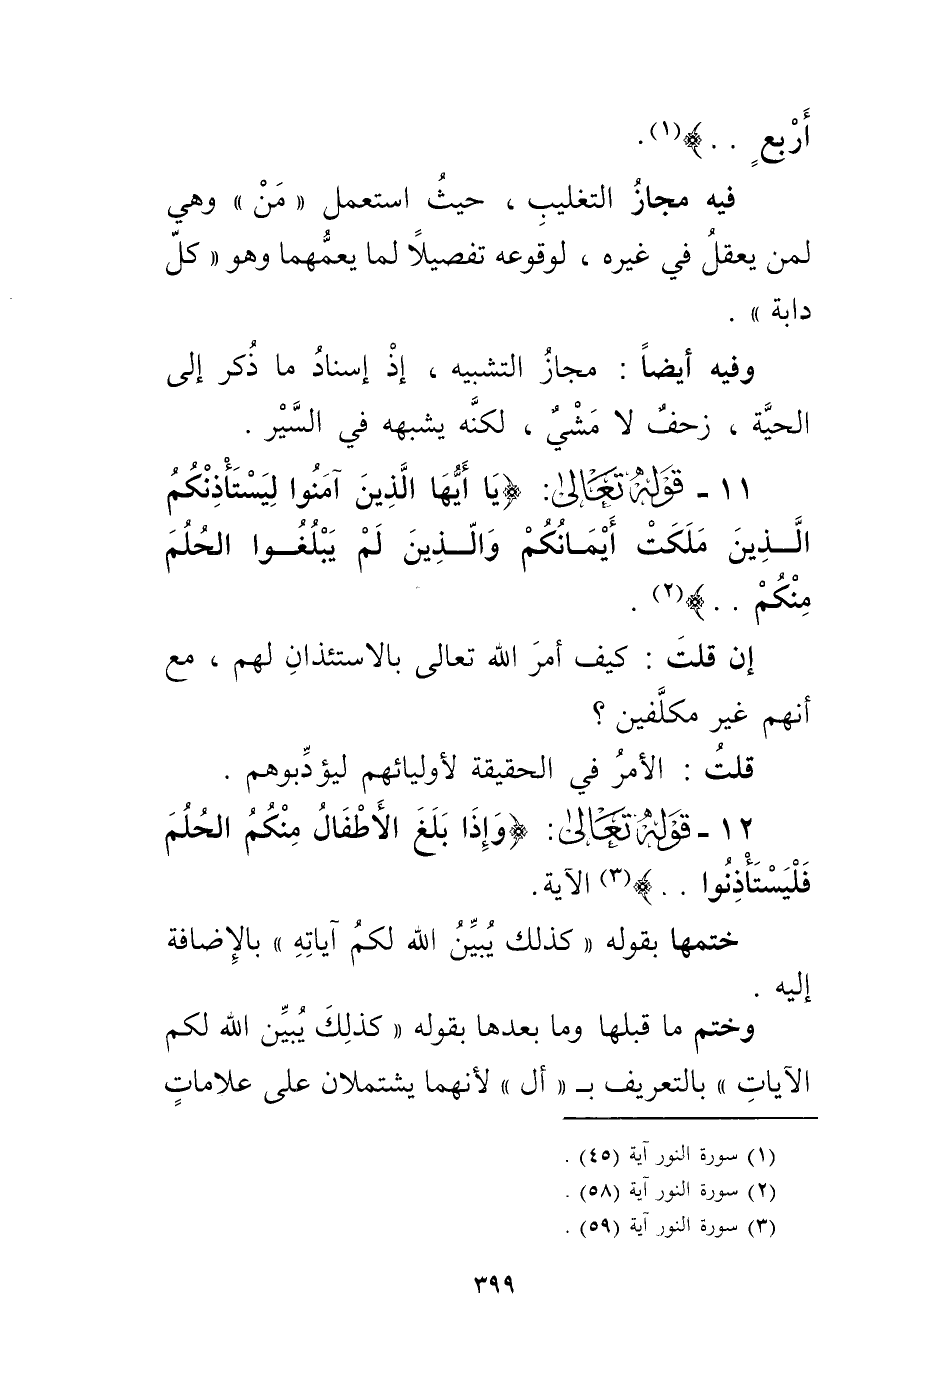 أَرْبعٍ . . ﴾(١).
فيه مجازُ التغليبِ ، حيثُ استعمل « مَنْ » وهي
لمن يعقلُ في غيره ، لوقوعه تفصيلاً لما يعمُّهما وهو « كلّ
دابة » .
وفيه أيضاً : مجازُ التشبيه ، إذْ إسنادُ ما ذُكر إلى
الحيَّة ، زحفٌ لا مَشْيٌ ، لكنَّه يشبهه في السَّيْر .
١١ - قَوْلُهُ تَعَالىٰ: ﴿يَا أَيُّهَا الَّذِينَ آمَنُوا لِيَسْتَأْذِنْكُمُ
الَّـذِينَ مَلَكَتْ أَيْمَـانُكُمْ وَالَّـذِينَ لَمْ يَبْلُغُـوا الحُلُمَ
مِنْكُمْ . . ﴾(٢) .
إن قلتَ : كيف أمرَ الله تعالى بالاستئذانِ لهم ، مع
أنهم غير مكلَّفين ؟
قلتُ : الأمرُ في الحقيقة لأوليائهم ليؤدِّبوهم .
١٢ - قَوْلُهُ تَعَالىٰ: ﴿وَإِذَا بَلَغَ الأَطْفَالُ مِنْكُمُ الحُلُمَ
فَلْيَسْتَأْذِنُوا . . ﴾(٣) الآية.
ختمها بقوله « كذلك يُبيِّنُ الله لكمُ آياتِهِ » بالإِضافة
إليه .
وختم ما قبلها وما بعدها بقوله « كذلِكَ يُبيِّن الله لكم
الآياتِ » بالتعريف بـ « أل » لأنهما يشتملان على علاماتٍ
(١) سورة النور آية (٤٥) .
(٢) سورة النور آية (٥٨) .
(٣) سورة النور آية (٥٩) .
٣٩٩